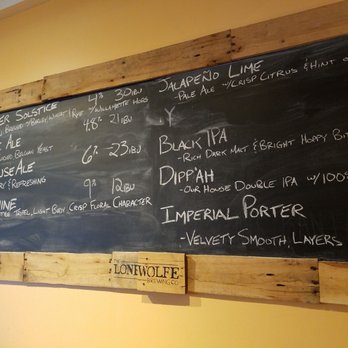 ER SOLSTICE 4% 30 IBU
W/ WILLAMETTE HOPS
4.8% 21 IBU
ALE
BELGIAN YEAST
6% -23 IBU
USE ALE
RY & REFRESHING
9% 12 IBU
INE
LIGHT BODY, CRISP FLORAL CHARACTER
JALAPEÑO LIME
-PALE ALE -W/CRISP CITRUS & HINT O
Y
BLACK IPA
-RICH DARK MALT & BRIGHT HOPPY BIT
DIPP'AH
-OUR HOUSE DOUBLE IPA W/100%
IMPERIAL PORTER
-VELVETY SMOOTH, LAYERS
THE
LONIWOLFE
BREWING CO.